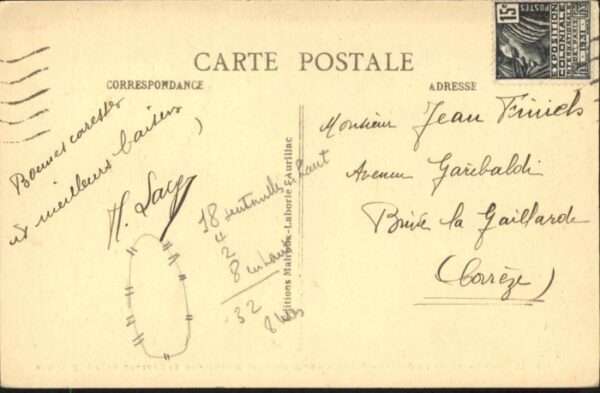 CARTE POSTALE
CORRESPONDANCE
ADRESSE
15c
POSTES
EXPOSITION
COLONIALE
INTERNATIONALE
PARIS 1931
Bonnes caresses
et meilleurs baisers
H.
18 en haut
4
2
8 en haut
32
8
Editions Malroux-Laborie, Aurillac
Monsieur Jean Finiels
Avenue Garibaldi
Brive la Gaillarde
(Corrèze)